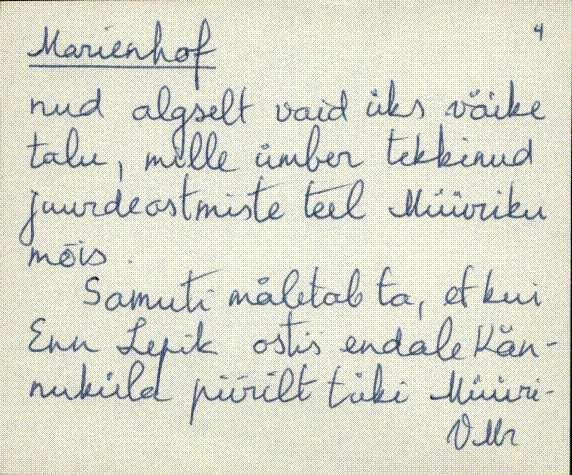 Marienhof
4
nud algselt vaid üks väike
talu, mille ümber tekkinud
juurdeostmiste teel Müüriku
mõis.
Samuti mäletab ta, et kui
Enn Lepik ostis endale Kän-
nuküla piirilt tüki Müüri-
VMr